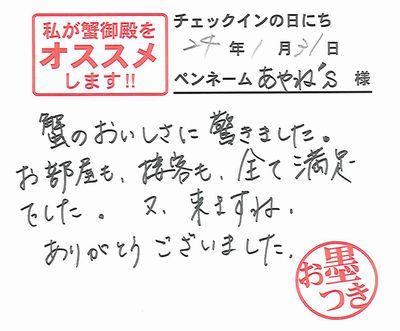 私が蟹御殿を
オススメ
します!!
チェックインの日にち
24年1月31日
ペンネーム あやね's 様
蟹のおいしさに驚きました。
お部屋も、接客も、全て満足
でした。又、来ますね。
ありがとうございました。
お墨つき